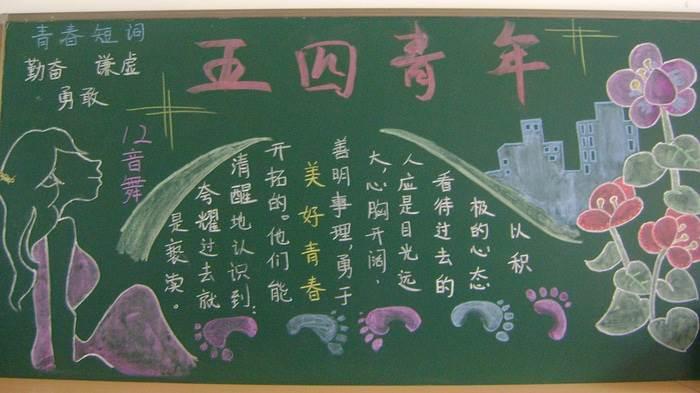 五四青年
青春短词
勤奋 谦虚
勇敢
12音舞
以积
极的心态
看待过去的
人应是目光远
大,心胸开阔,
善明事理,勇于
美好青春
开拓的。他们能
清醒地认识到:
夸耀过去就
是亵渎。